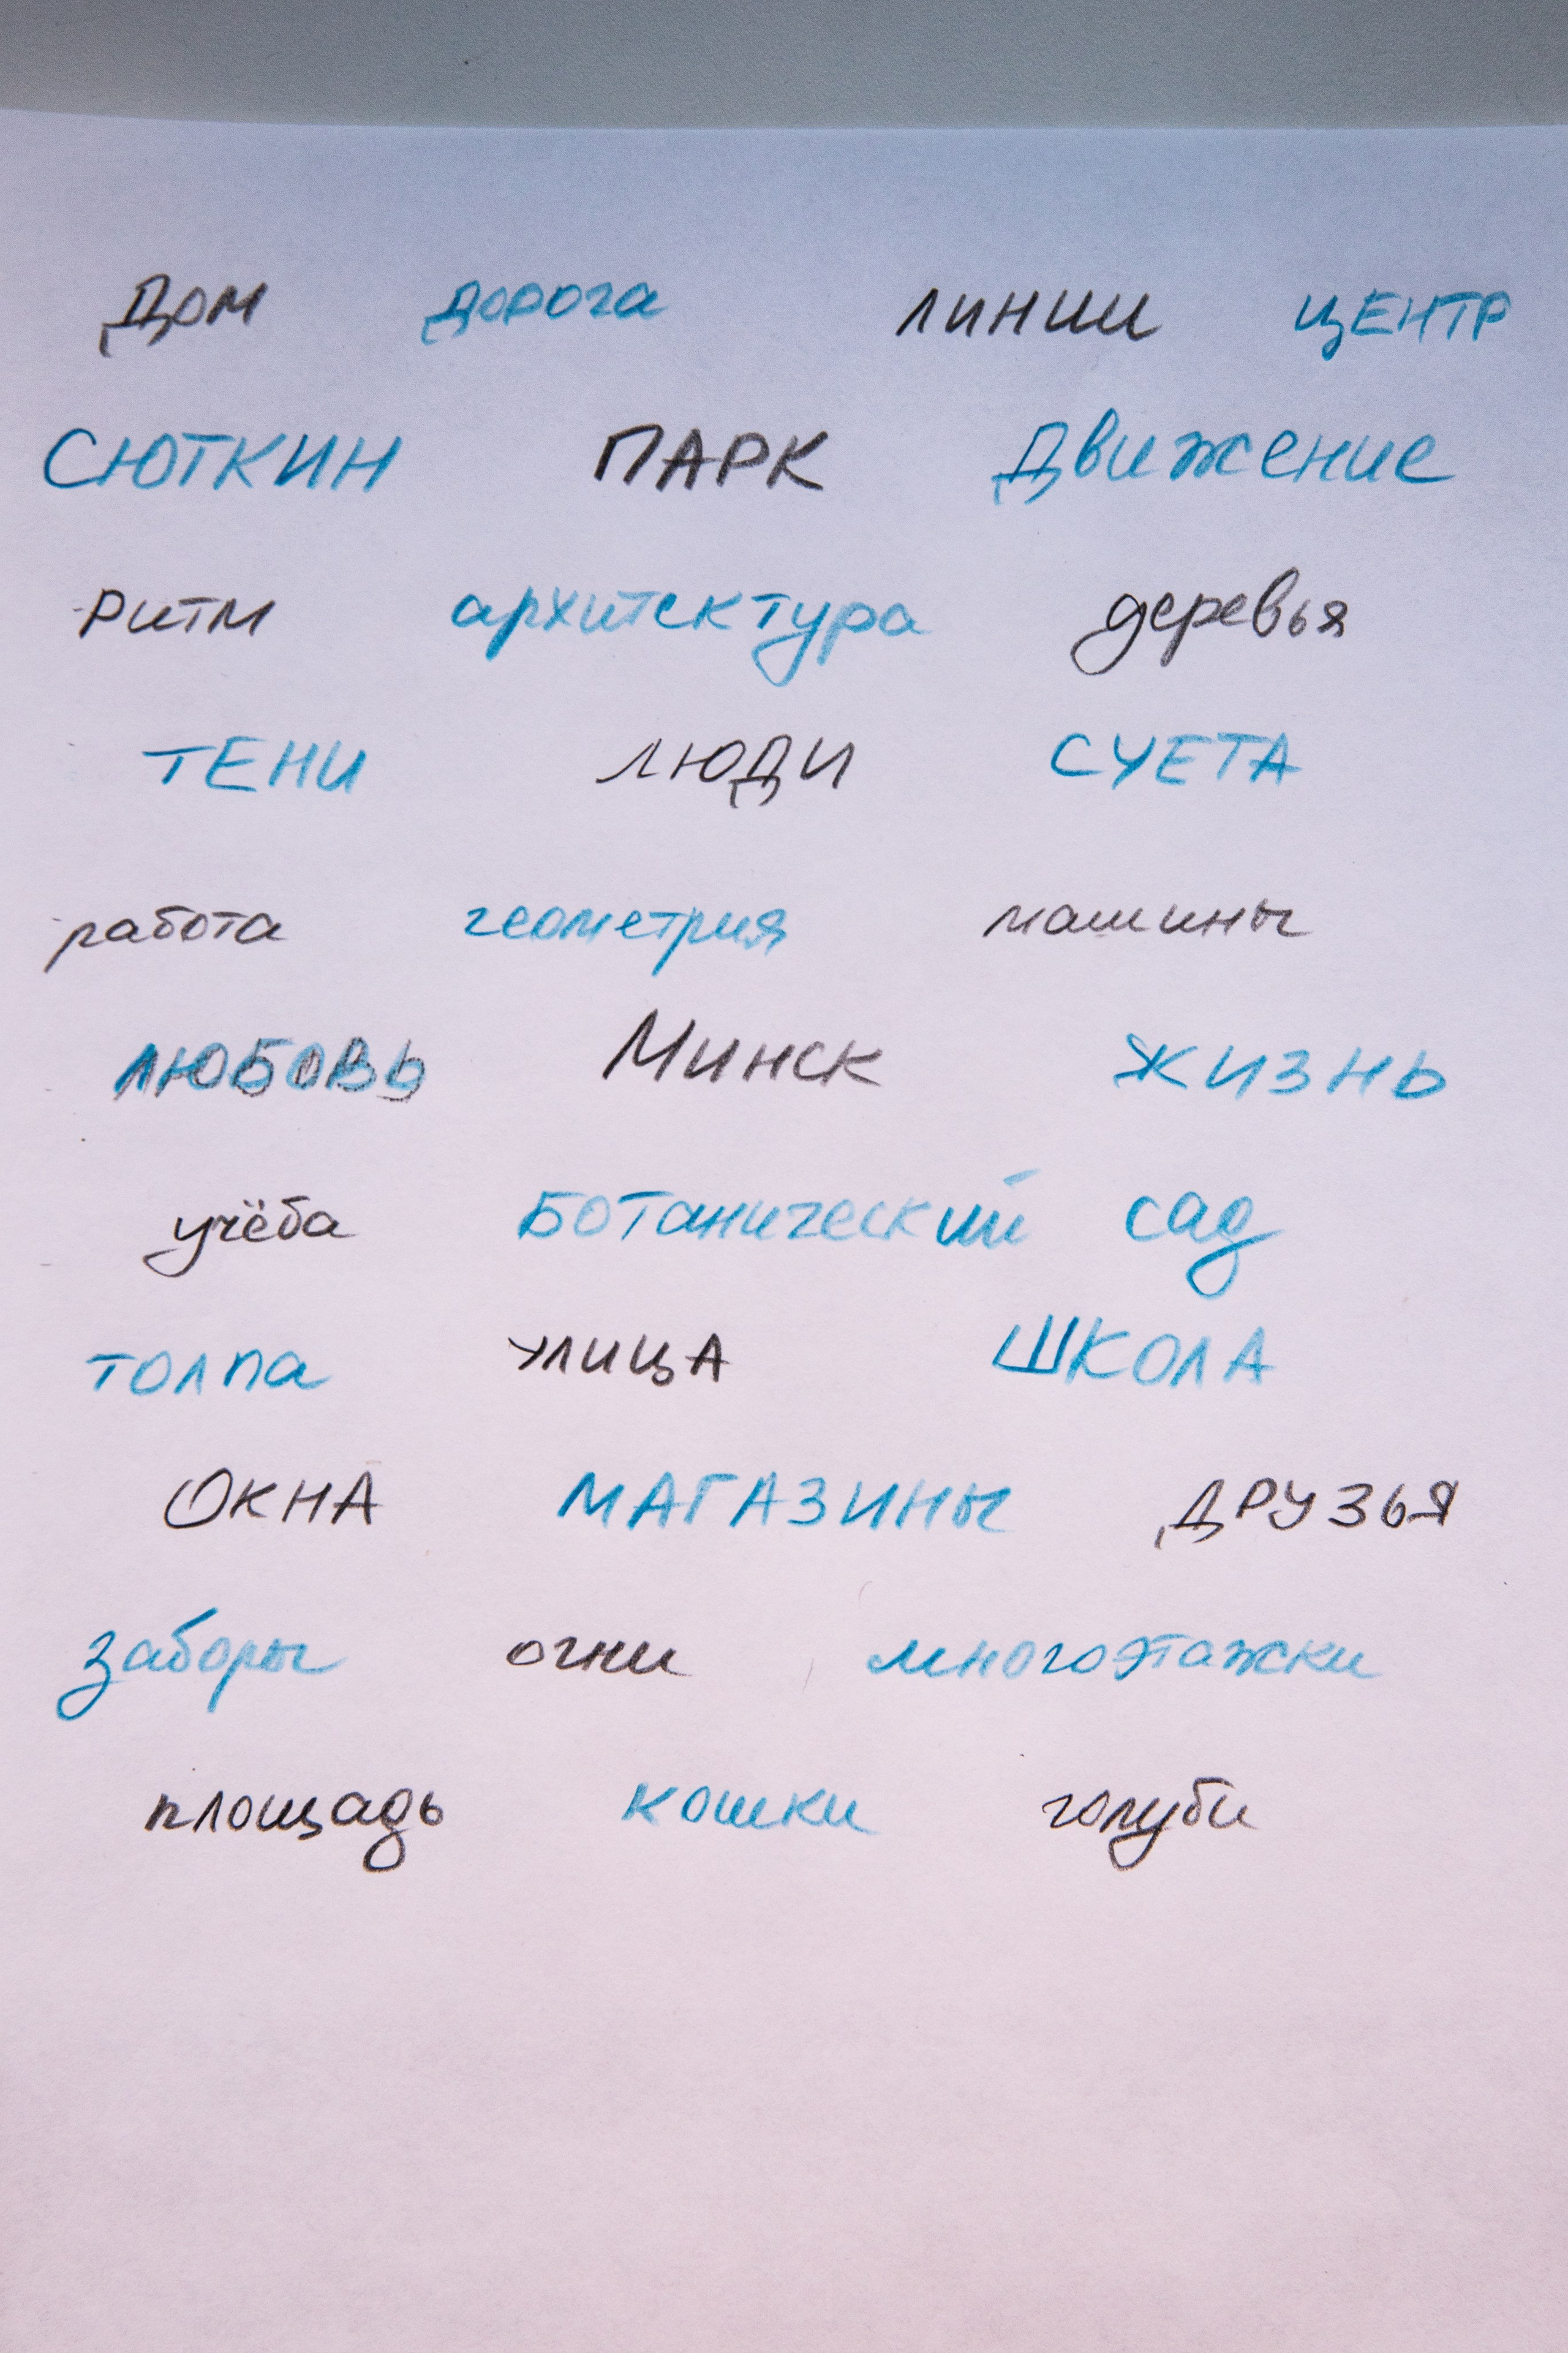 Дом дорога линии ЦЕНТР
СЮТКИН ПАРК Движение
Ритм архитектура деревья
ТЕНИ люди СУЕТА
работа геометрия машины
ЛЮБОВЬ Минск ЖИЗНЬ
учёба Ботанический сад
толпа улицА ШКОЛА
ОКНА МАГАЗИНЫ ДРУЗЬЯ
заборы огни многоэтажки
площадь кошки голуби